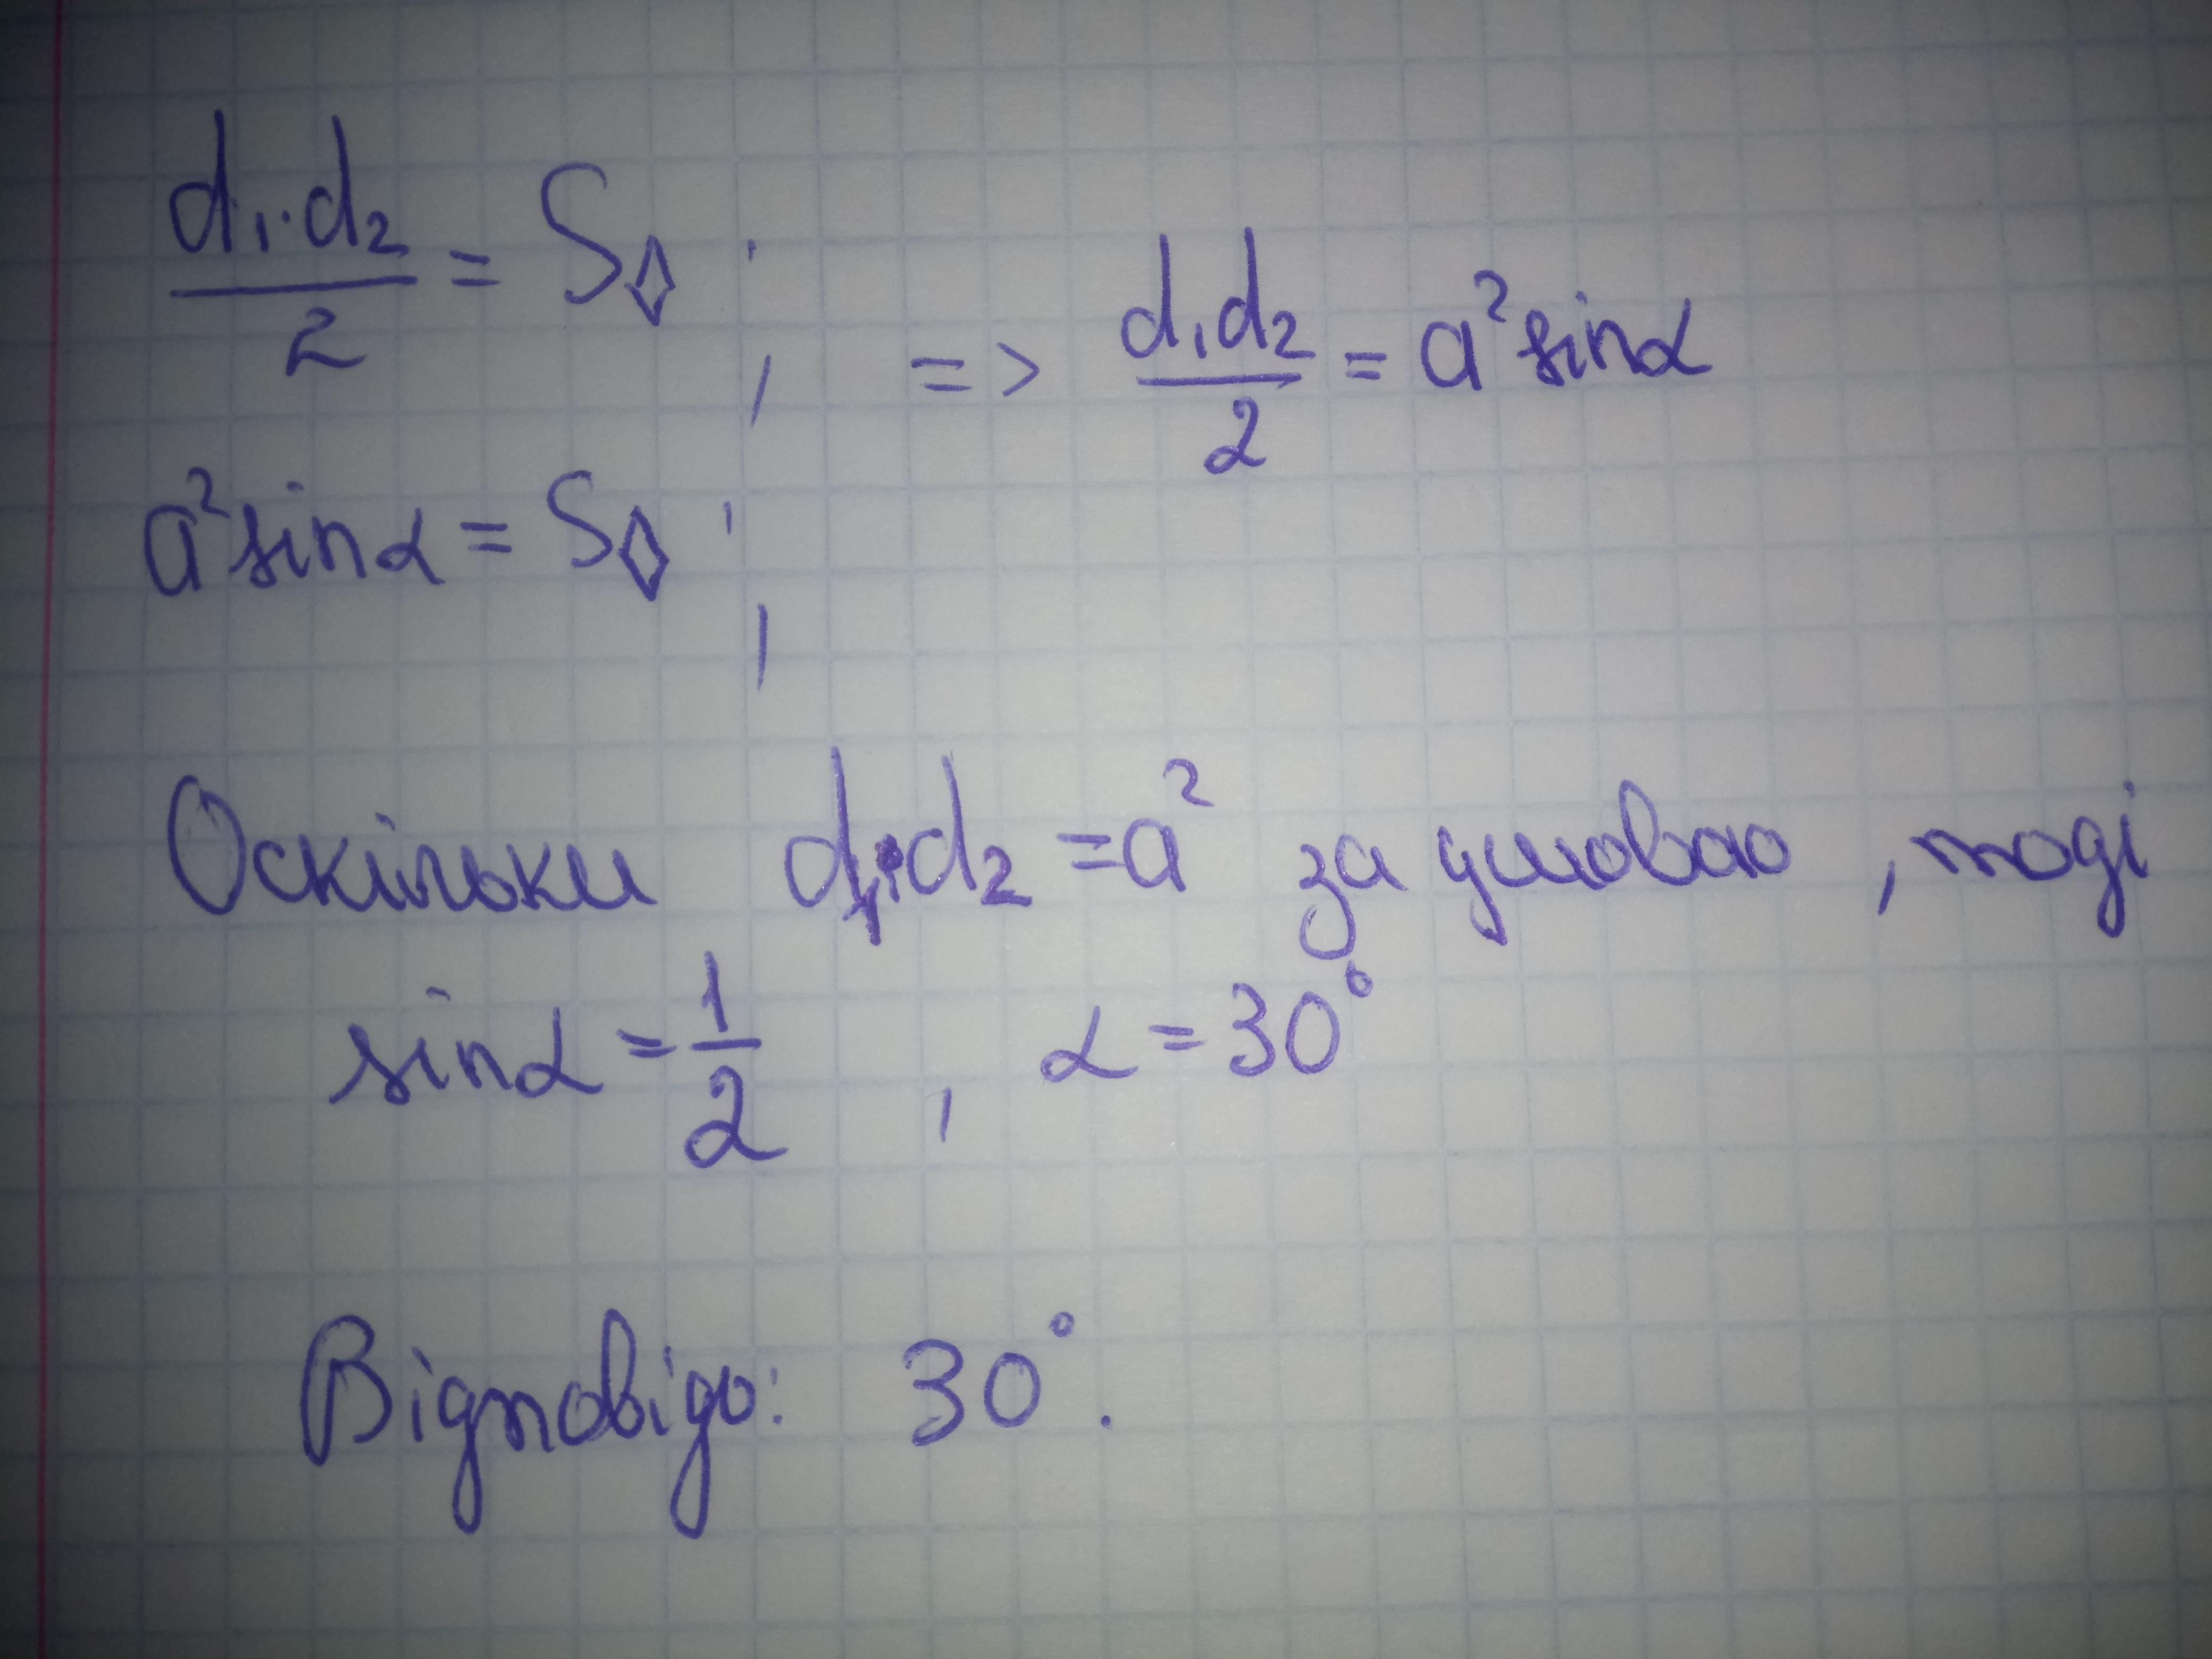 d₁·d₂/2 = S◊; => d₁d₂/2 = a²sinα
a²sinα = S◊;
Оскільки d₁·d₂ = a² за умовою, тоді
sinα = 1/2, α = 30°
Відповідь: 30°.